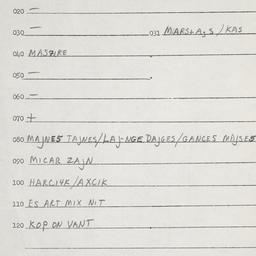 020 —
030 — 033 MARSLAJS / KAS
040 MASZIRE
050 —
060 —
070 +
080 MAJNES TAJNES/LAJ-NGE DAJGES/GANCES MAJSES
090 MICAR ZAJN
100 HARCIYK/AXCIK
110 ES ART MIX NIT
120 KOP ON VANT